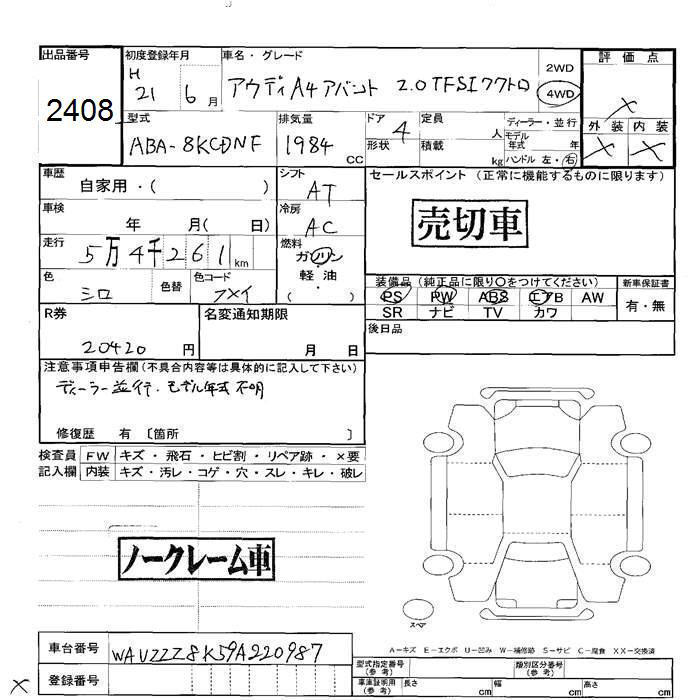 出品番号
2408
初度登録年月
H
21 6月
車名・グレード
アウディA4アバント 2.0TFSIクワトロ
2WD
4WD
評価点
×
外装 内装
× ×
型式
ABA-8KCDNF
排気量
1984 CC
ドア
4
形状
定員
人
積載
kg
ディーラー・並行
モデル年式 年
ハンドル 左・右
車歴
自家用・( )
シフト
AT
車検
年 月( 日)
冷房
AC
走行
5万4千261km
燃料
ガソリン
軽油
( )
色
シロ
色替
色コード
セールスポイント(正常に機能するものに限ります)
売切車
装備品(純正品に限り○をつけてください)
PS PW ABS エアB AW
SR ナビ TV カワ
新車保証書
有・無
後日品
R券
20420 円
名変通知期限
月 日
注意事項申告欄(不具合内容等は具体的に記入して下さい)
ディーラー並行・モデル年式不明
修復歴 有 〔箇所 〕
検査員記入欄
FW キズ・飛石・ヒビ割・リペア跡・×要
内装 キズ・汚レ・コゲ・穴・スレ・キレ・破レ
ノークレーム車
スペア
A-キズ E-エクボ U-凹み W-補修跡 S-サビ C-腐食 XX-交換済
車台番号
WAUZZZ8K59A220987
登録番号
×
型式指定番号(参考)
類別区分番号(参考)
車庫証明用(参考) 長さ cm 幅 cm 高さ cm